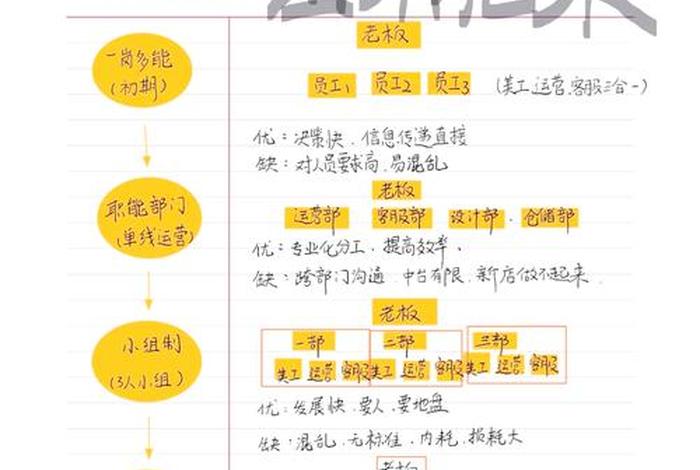 老板
一岗多能
(初期)
员工1 员工2 员工3 (美工.运营.客服三合一)
优：决策快、信息传递直接
缺：对人员要求高、易混乱
老板
职能部门
(单线运营)
运营部 客服部 设计部、仓储部
优：专业化分工、提高效率、
缺：跨部门沟通、中台有限、新店做不起来.
老板
小组制
(3人小组)
一部 二部 三部
美工 运营 客服 美工 运营 客服 美工 运营 客服
优：发展快、要人、要地盘
缺：混乱、无标准、内耗、损耗大
老板